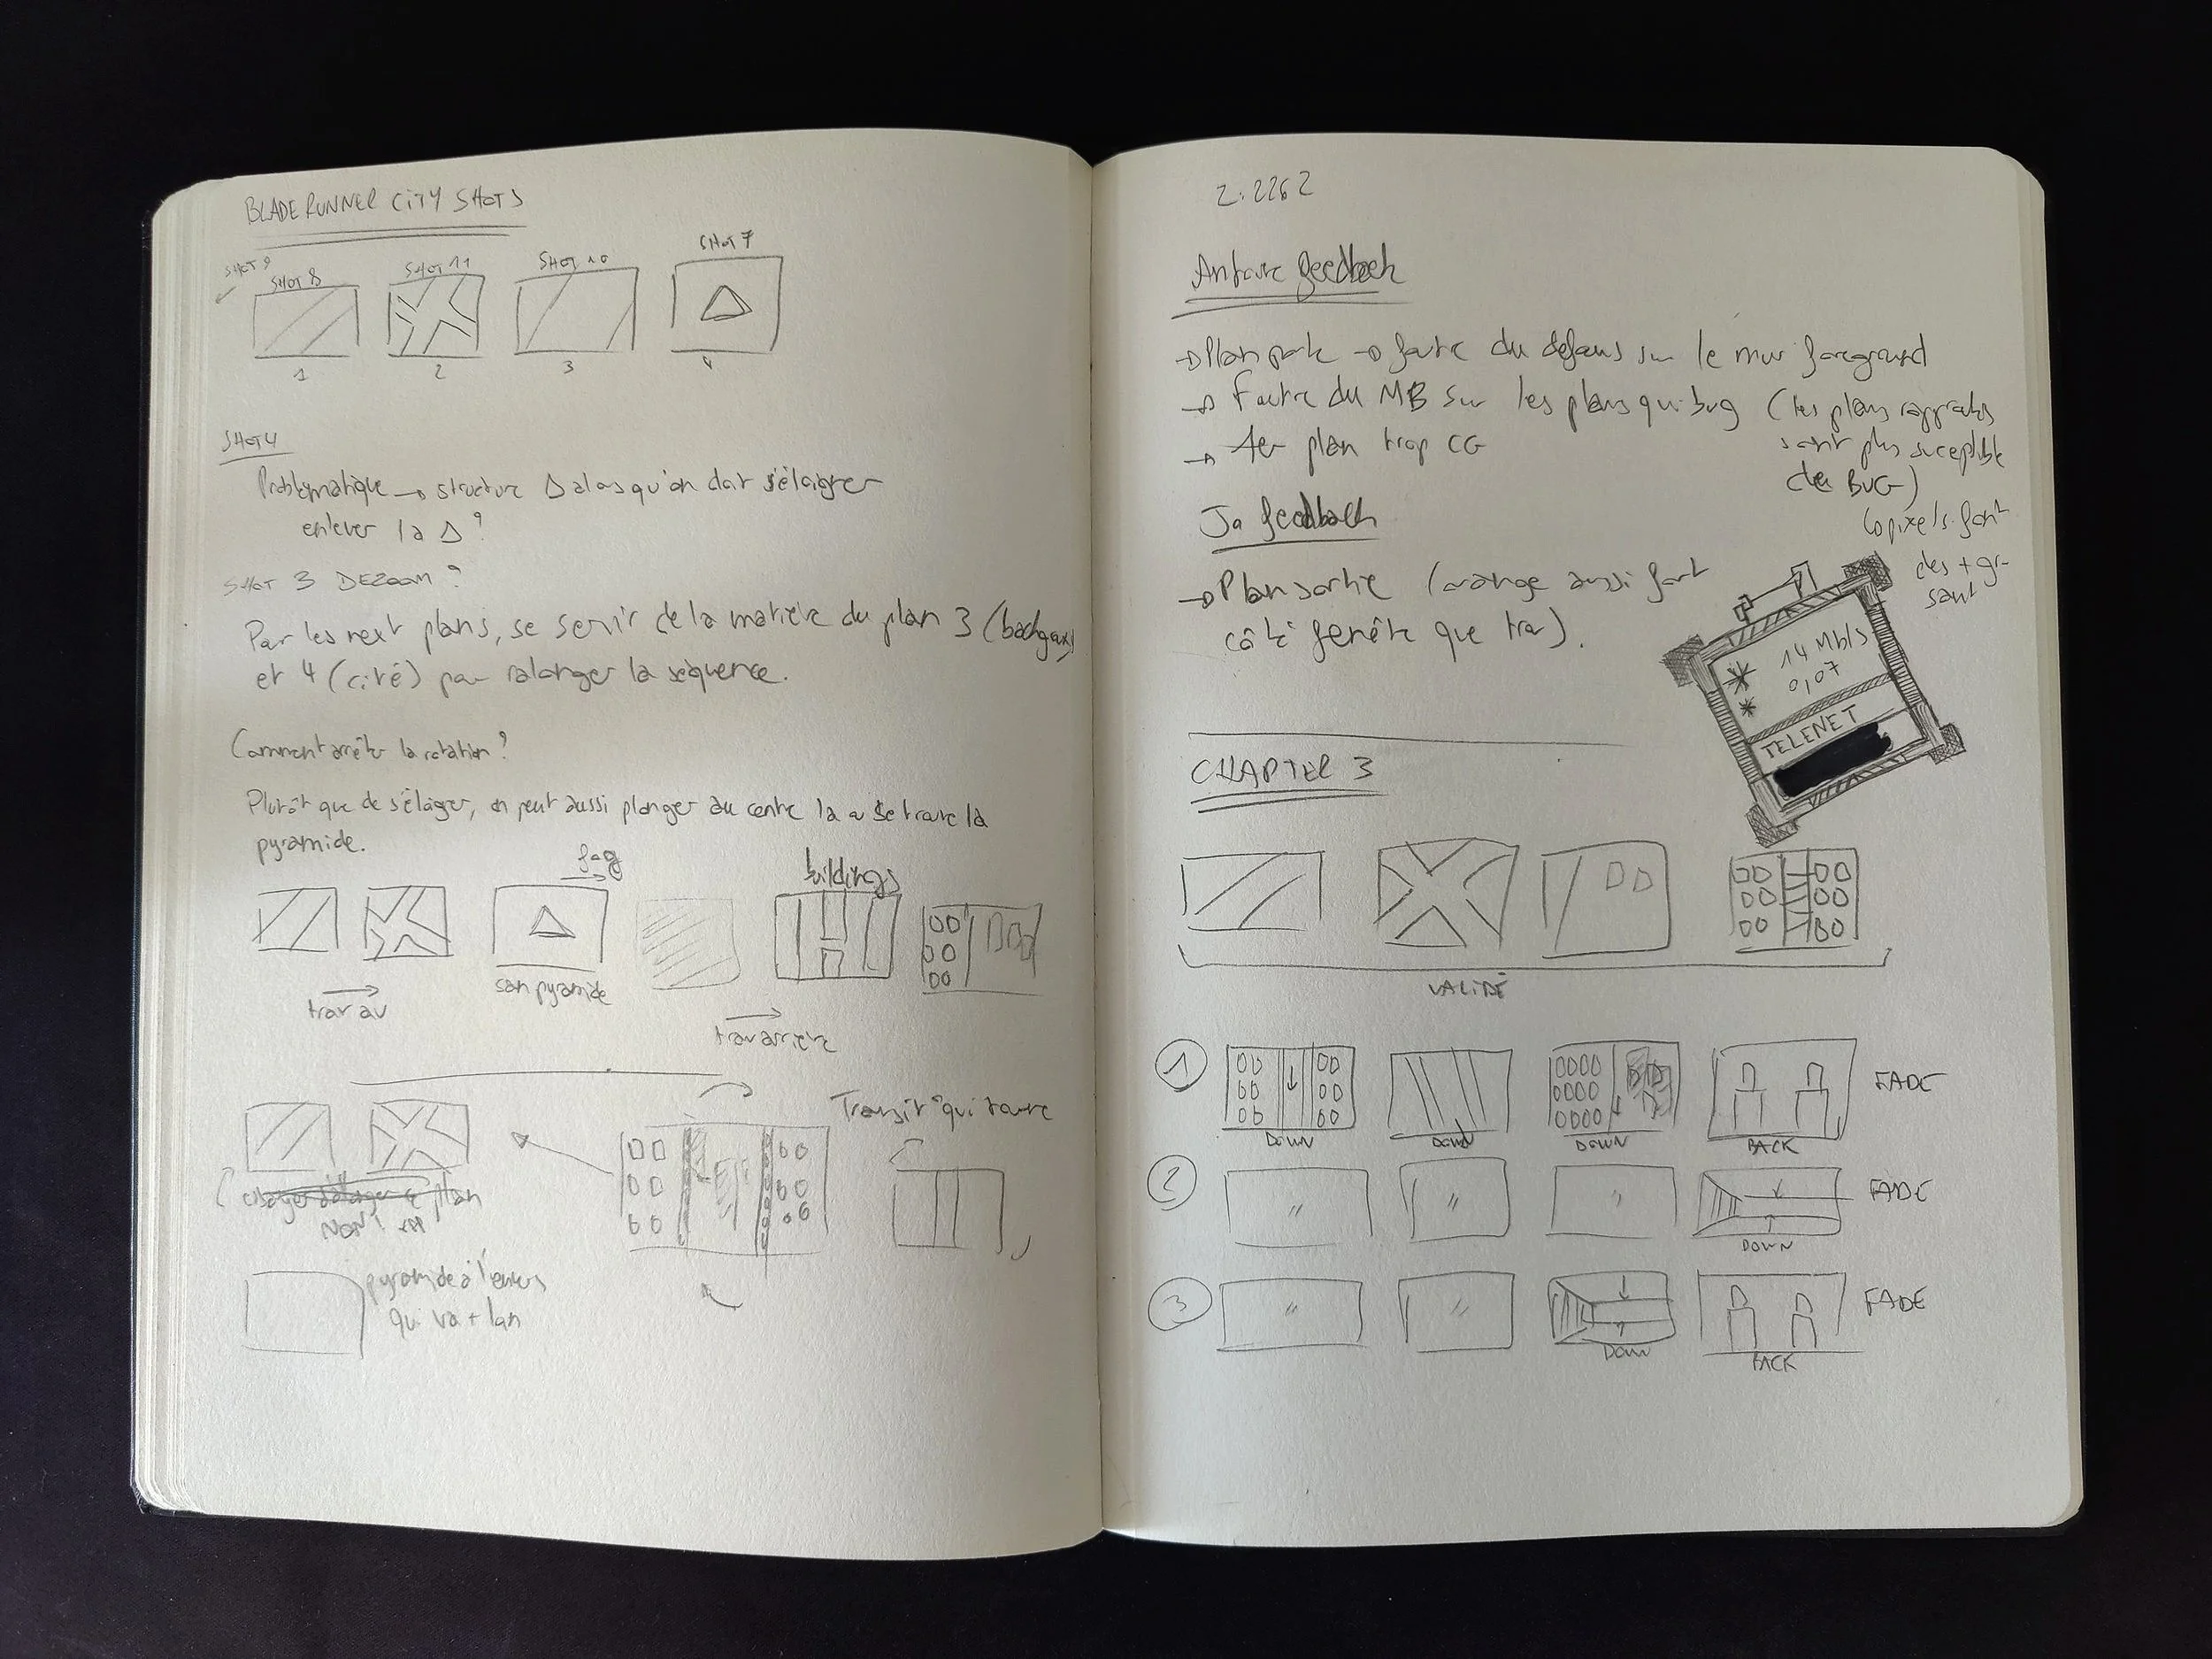 BLADE RUNNER CITY SHOTS
SHOT 9
SHOT 8
SHOT 11
SHOT 10
SHOT 7
1
2
3
4
SHOT 4
Problématique → structure Δ alors qu'on doit s'éloigner
enlever la Δ ?
SHOT 3 DEZOOM ?
Par les next plans, se servir de la matière du plan 3
et 4 (cité) pour ralonger la séquence.
Comment arrêter la rotation ?
Plutôt que de s'éloigner, on peut aussi plonger au centre la où se trouve la
pyramide.
fog
buildings
trav av
san pyramide
trav arrière
Transit° qui tourne
plan
NON !
pyramide à l'envers
qui va + loin
2.2262
feedback
→ Plan porte → foutre du defaus sur le mur foreground
→ Foutre du MB sur les plans qui bug (les plans rapprochés
sont plus suceptible
de BUG)
→ 1er plan trop CG
pixels font
des + gr-
Jo feedback
→ Plan sortie (orange aussi fort
côté fenêtre que trav).
14 Mb/s
0,07
TELENET
CHAPTER 3
VALIDÉ
1
DOWN
DOWN
DOWN
BACK
FADE
2
DOWN
FADE
3
DOWN
BACK
FADE